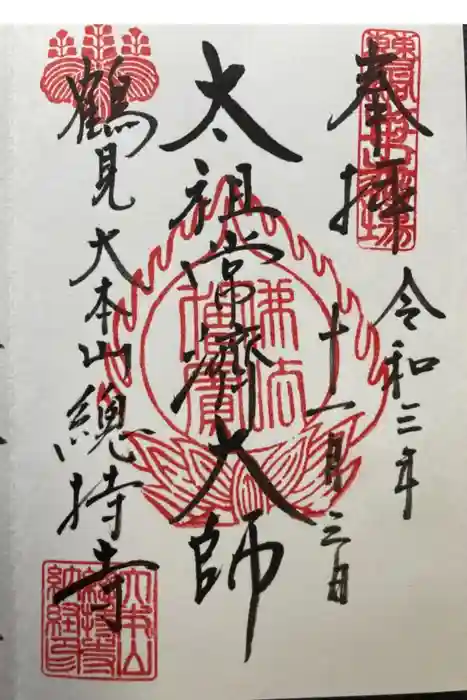 奉拝
令和三年
十一月三日
太祖常濟大師
佛法僧寶
鶴見大本山總持寺
大本山
總持寺
納経印